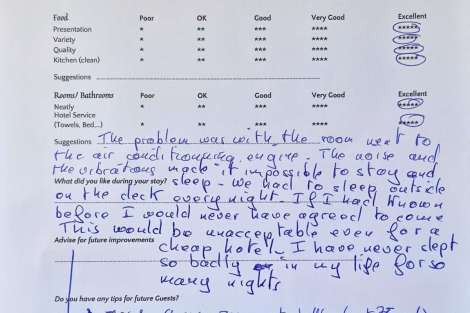 Food Poor OK Good Very Good Excellent
Presentation * ** *** **** *****
Variety * ** *** **** *****
Quality * ** *** **** *****
Kitchen (clean) * ** *** **** *****
Suggestions
Rooms/ Bathrooms Poor OK Good Very Good Excellent
Neatly * ** *** **** *****
Hotel Service
(Towels, Bed...) * ** *** **** *****
Suggestions The problem was with the room next to
the air conditioning engine. The noise and
the vibrations made it impossible to stay and
What did you like during your stay? sleep - we had to sleep outside
on the deck every night. If I had known
before I would never have agreed to come
This would be unacceptable even for a
Advice for future improvements cheap hotel - I have never slept
so badly in my life for so
many nights
Do you have any tips for future Guests?